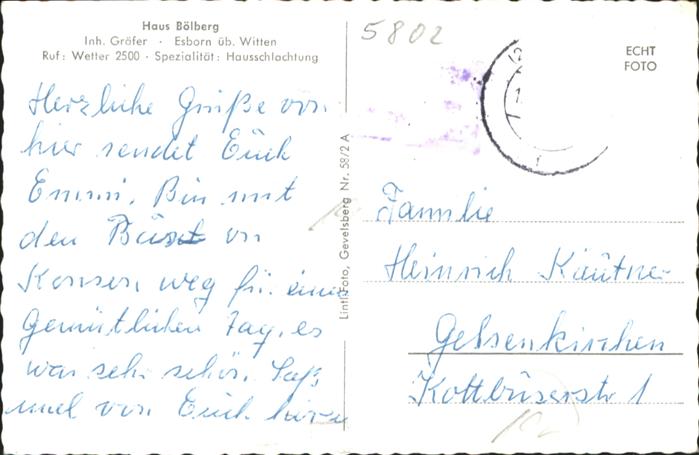 Haus Bölberg
Inh. Gräfer · Esborn üb. Witten
Ruf: Wetter 2500 · Spezialität: Hausschlachtung
5802
ECHT
FOTO
Herzliche Grüße von
hier sendet Euch
Emmi. Bin mit
den
weg für einen
gemütlichen Tag, es
war sehr schön. Laß
mal von Euch hören
Lintl-Foto, Gevelsberg Nr. 58/2 A
Familie
Heinrich
Gelsenkirchen
Kottbuserstr 1